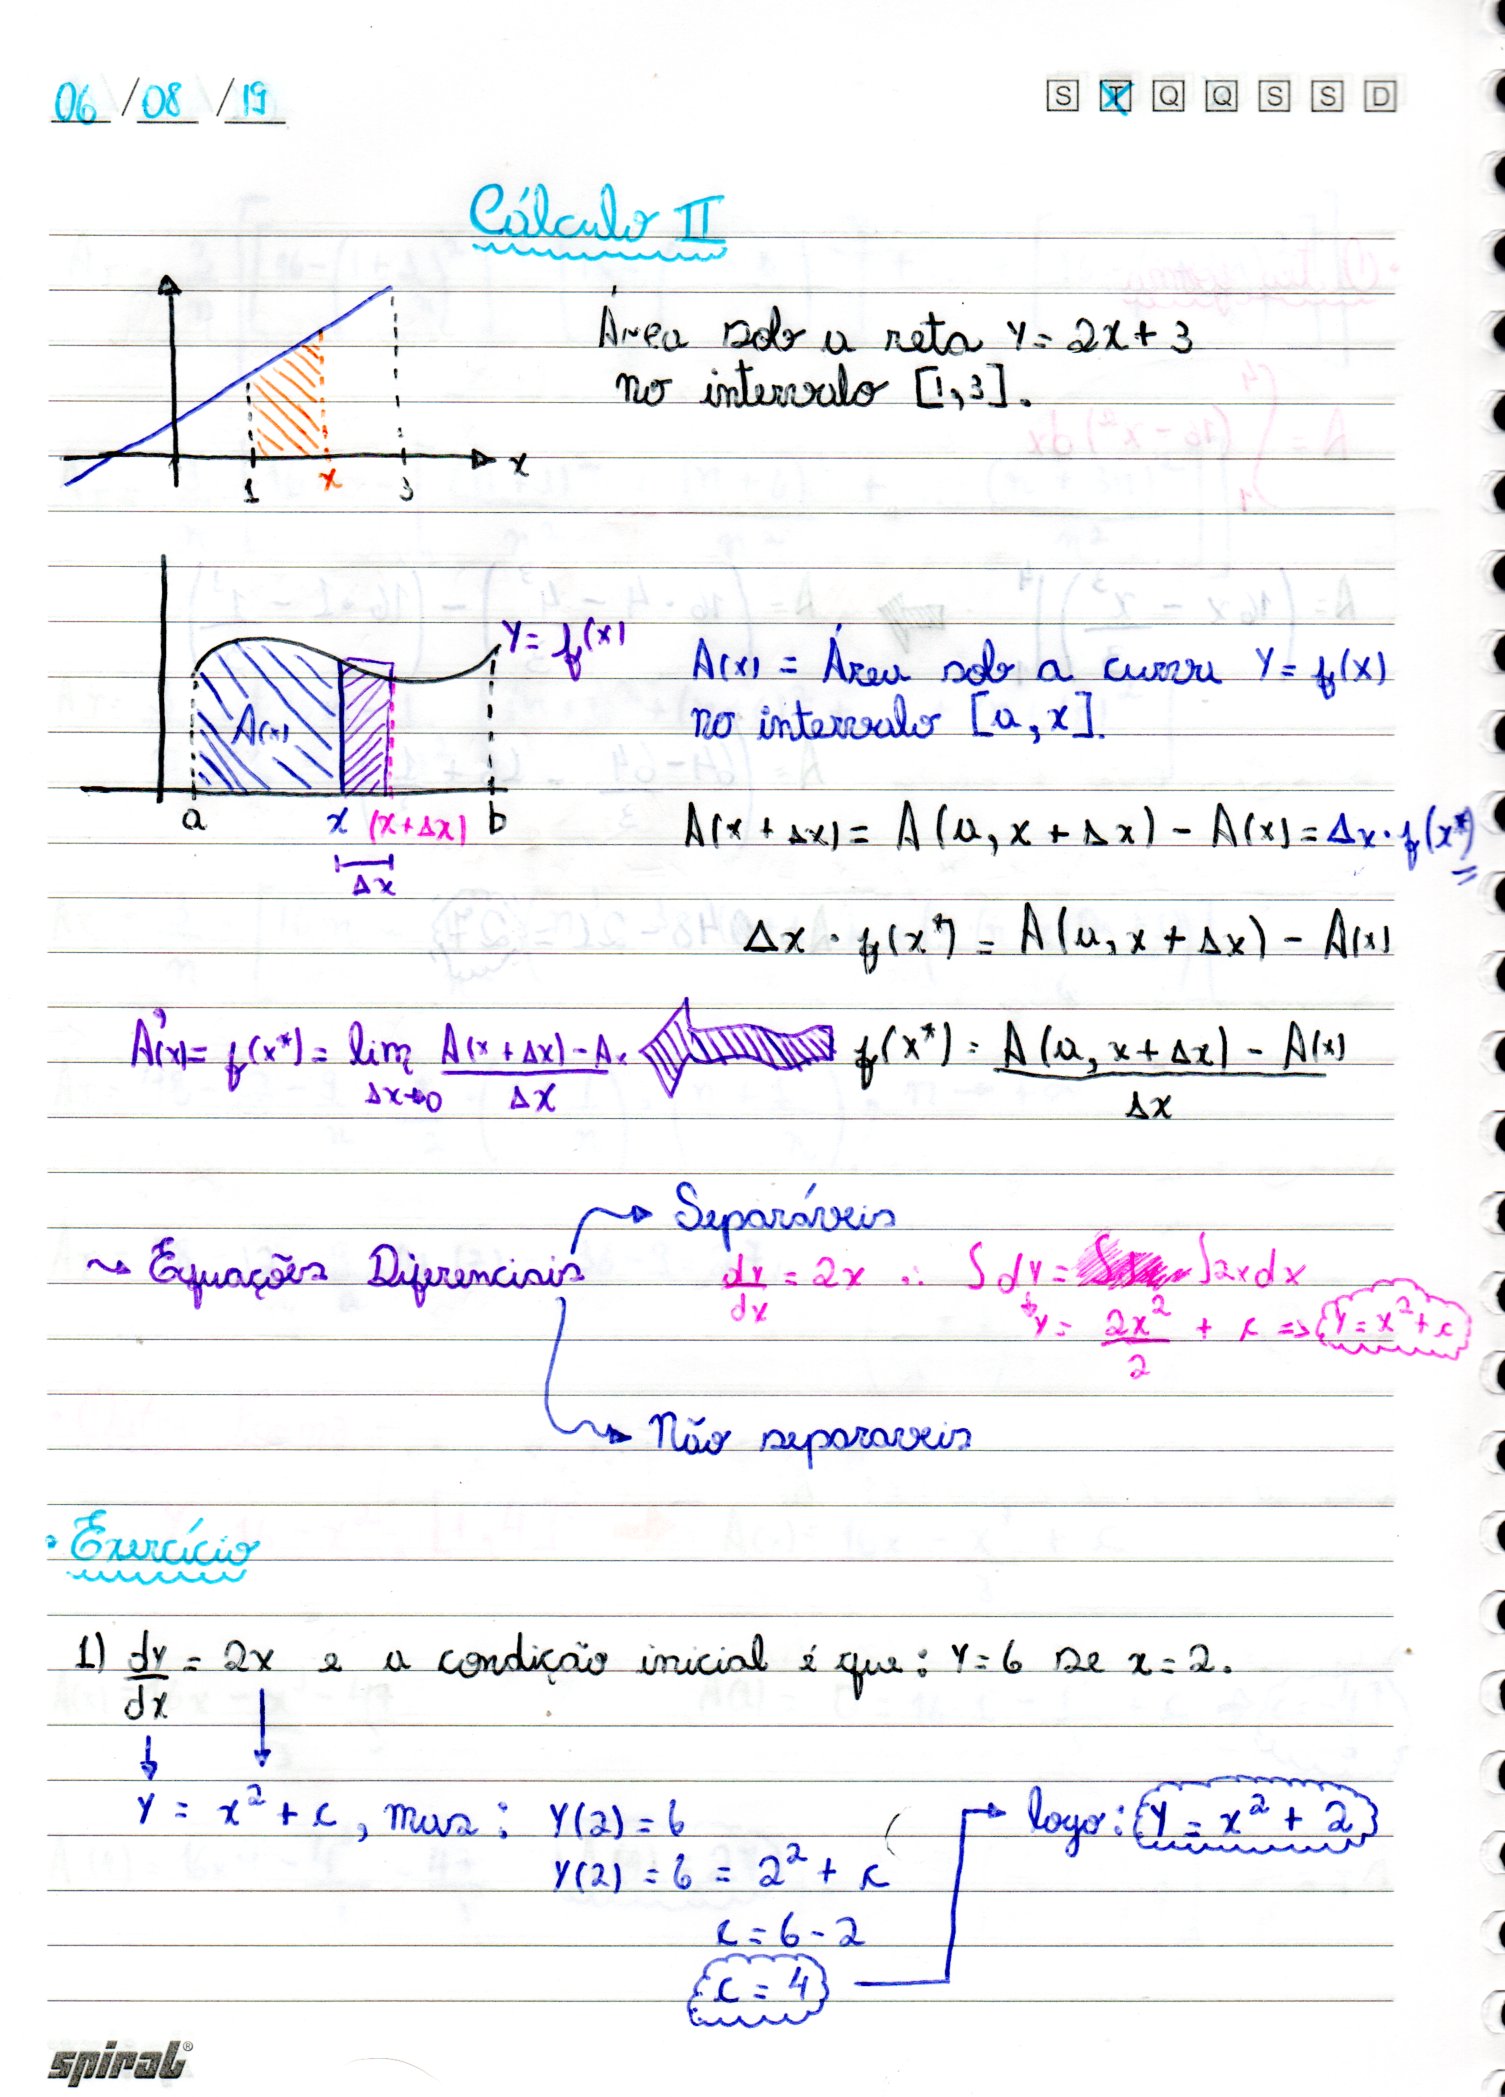 06/08/19
S T Q Q S S D
Cálculo II
Área sob a reta Y = 2x + 3
no intervalo [1,3].
x
1 x 3
Y = f(x)
A(x) = Área sob a curva Y = f(x)
no intervalo [a, x].
A(x)
a x (x+Δx) b
Δx
A(x + Δx) = A(a, x + Δx) - A(x) = Δx · f(x*)
Δx · f(x*) = A(a, x + Δx) - A(x)
A'(x) = f(x*) = lim Δx→0 A(x + Δx) - Ax / Δx
f(x*) = A(a, x + Δx) - A(x) / Δx
Separáveis
~> Equações Diferenciais
dy/dx = 2x ∴ ∫dy = ∫2xdx
Y = 2x²/2 + c => Y = x² + c
Não separaveis
• Exercício
1) dy/dx = 2x e a condição inicial é que: Y = 6 se x = 2.
Y = x² + c, mas: Y(2) = 6
Y(2) = 6 = 2² + c
c = 6 - 2
c = 4
logo: Y = x² + 2
spiral®